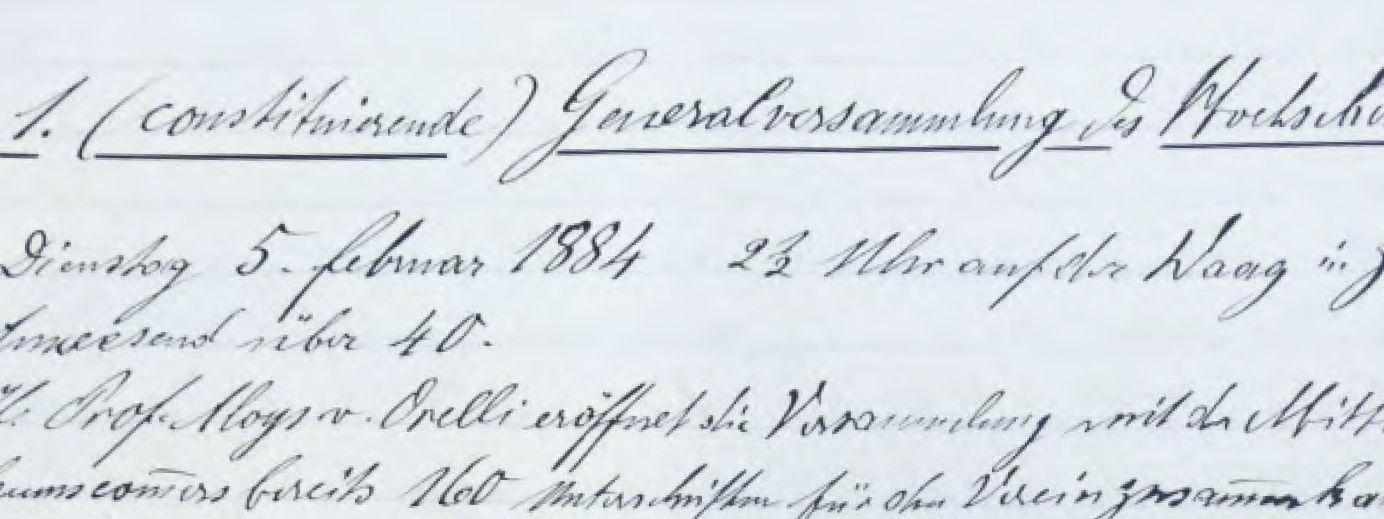 1. (constituierende) Generalversammlung des Hochschu
Dienstag 5. Februar 1884 2½ Uhr auf der Waag in Z
Anwesend über 40.
H. Prof. Aloys v. Orelli eröffnet die Versammlung mit der Mitt
bereits 160 Unterschriften für den Verein